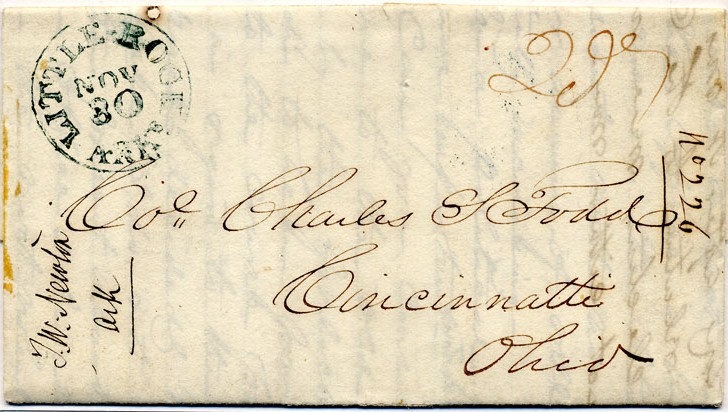 LITTLE-ROCK
NOV
30
ARK
Col. Charles S Todd
Cincinnatti
Ohio
T. W. Newton
Ark